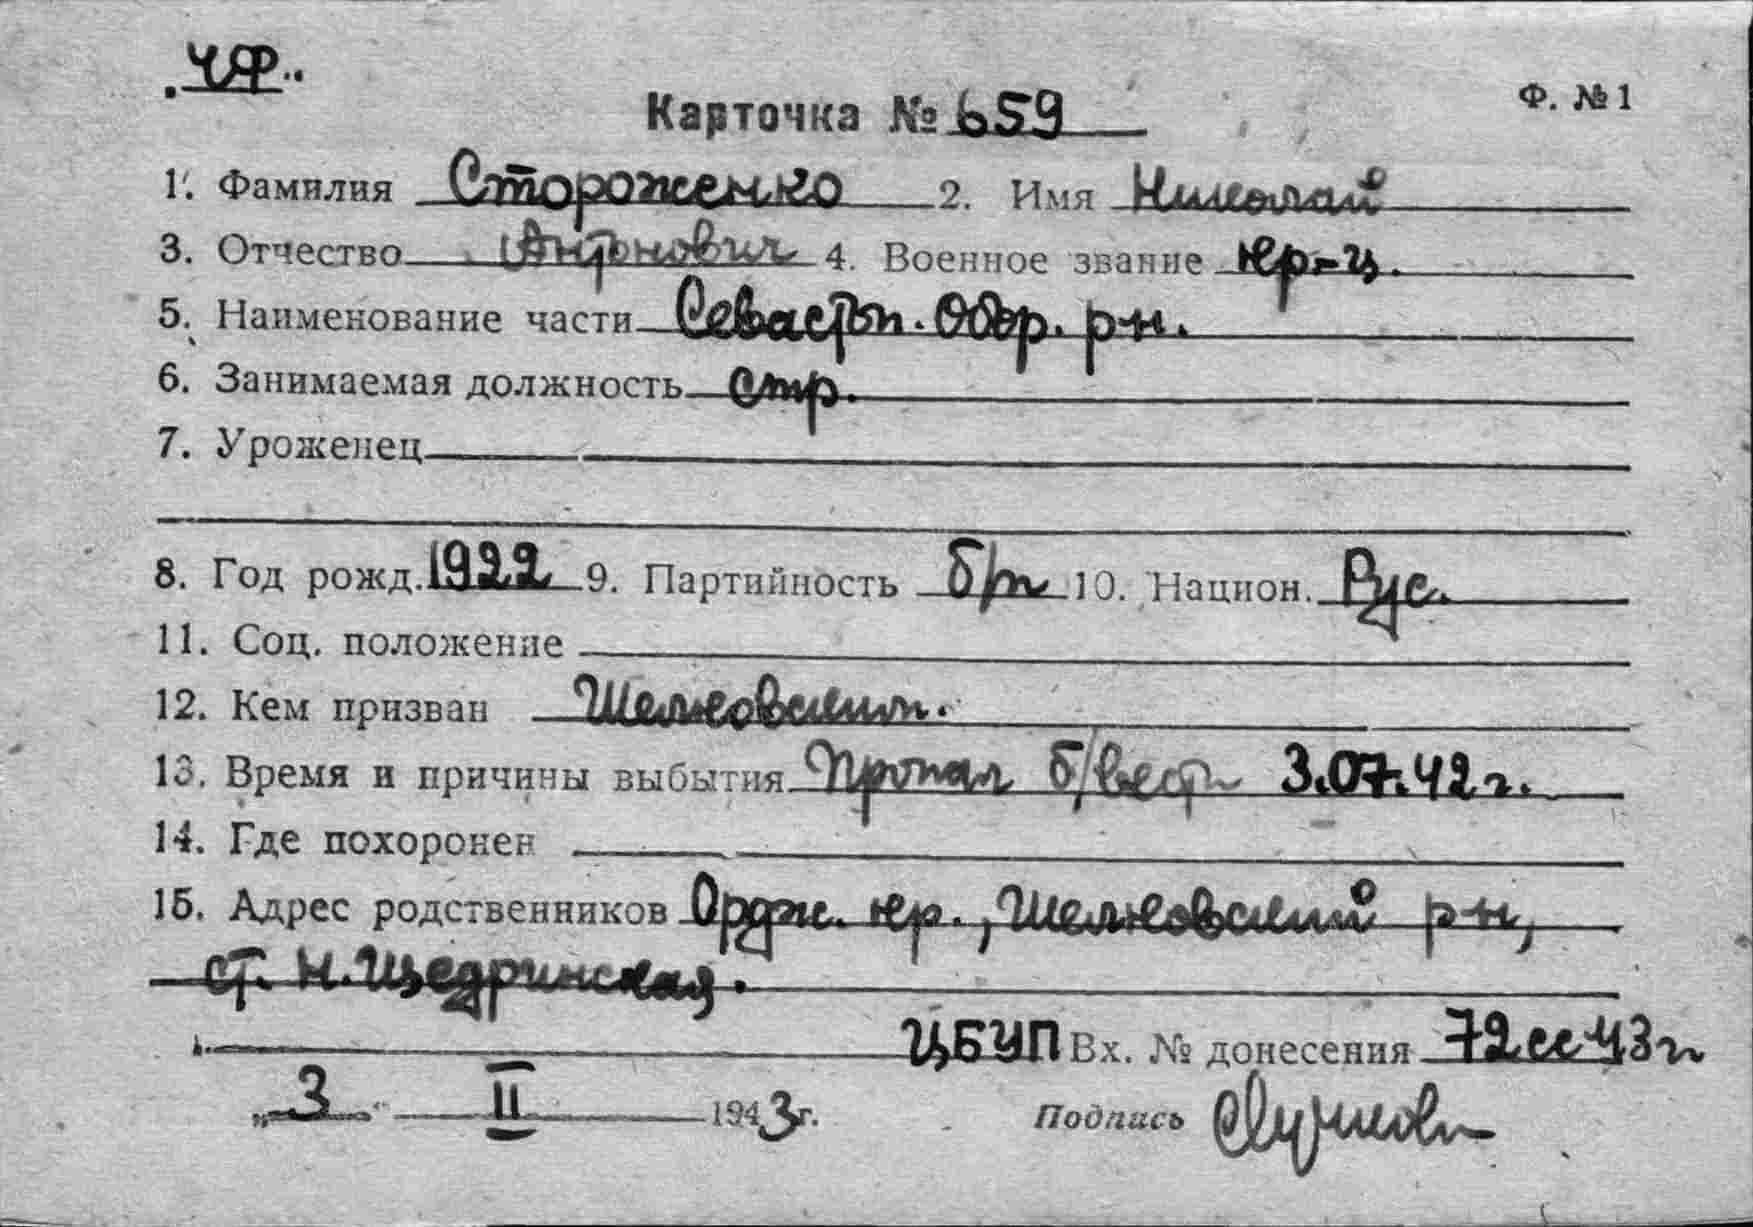 ЧФ
Ф. №1
Карточка № 659
1. Фамилия Стороженко 2. Имя Николай
3. Отчество Антонович 4. Военное звание кр-ц.
5. Наименование части Севастоп. Обор. р-н.
6. Занимаемая должность стр.
7. Уроженец
8. Год рожд. 1922 9. Партийность б/п 10. Национ. Рус.
11. Соц. положение
12. Кем призван Шелковским.
13. Время и причины выбытия Пропал б/вести 3.07.42 г.
14. Где похоронен
15. Адрес родственников Ордж. кр., Шелковский р-н,
ст. Н. Щедринская.
ЦБУП Вх. № донесения 72сс 43 г
„3" II 1943 г. Подпись